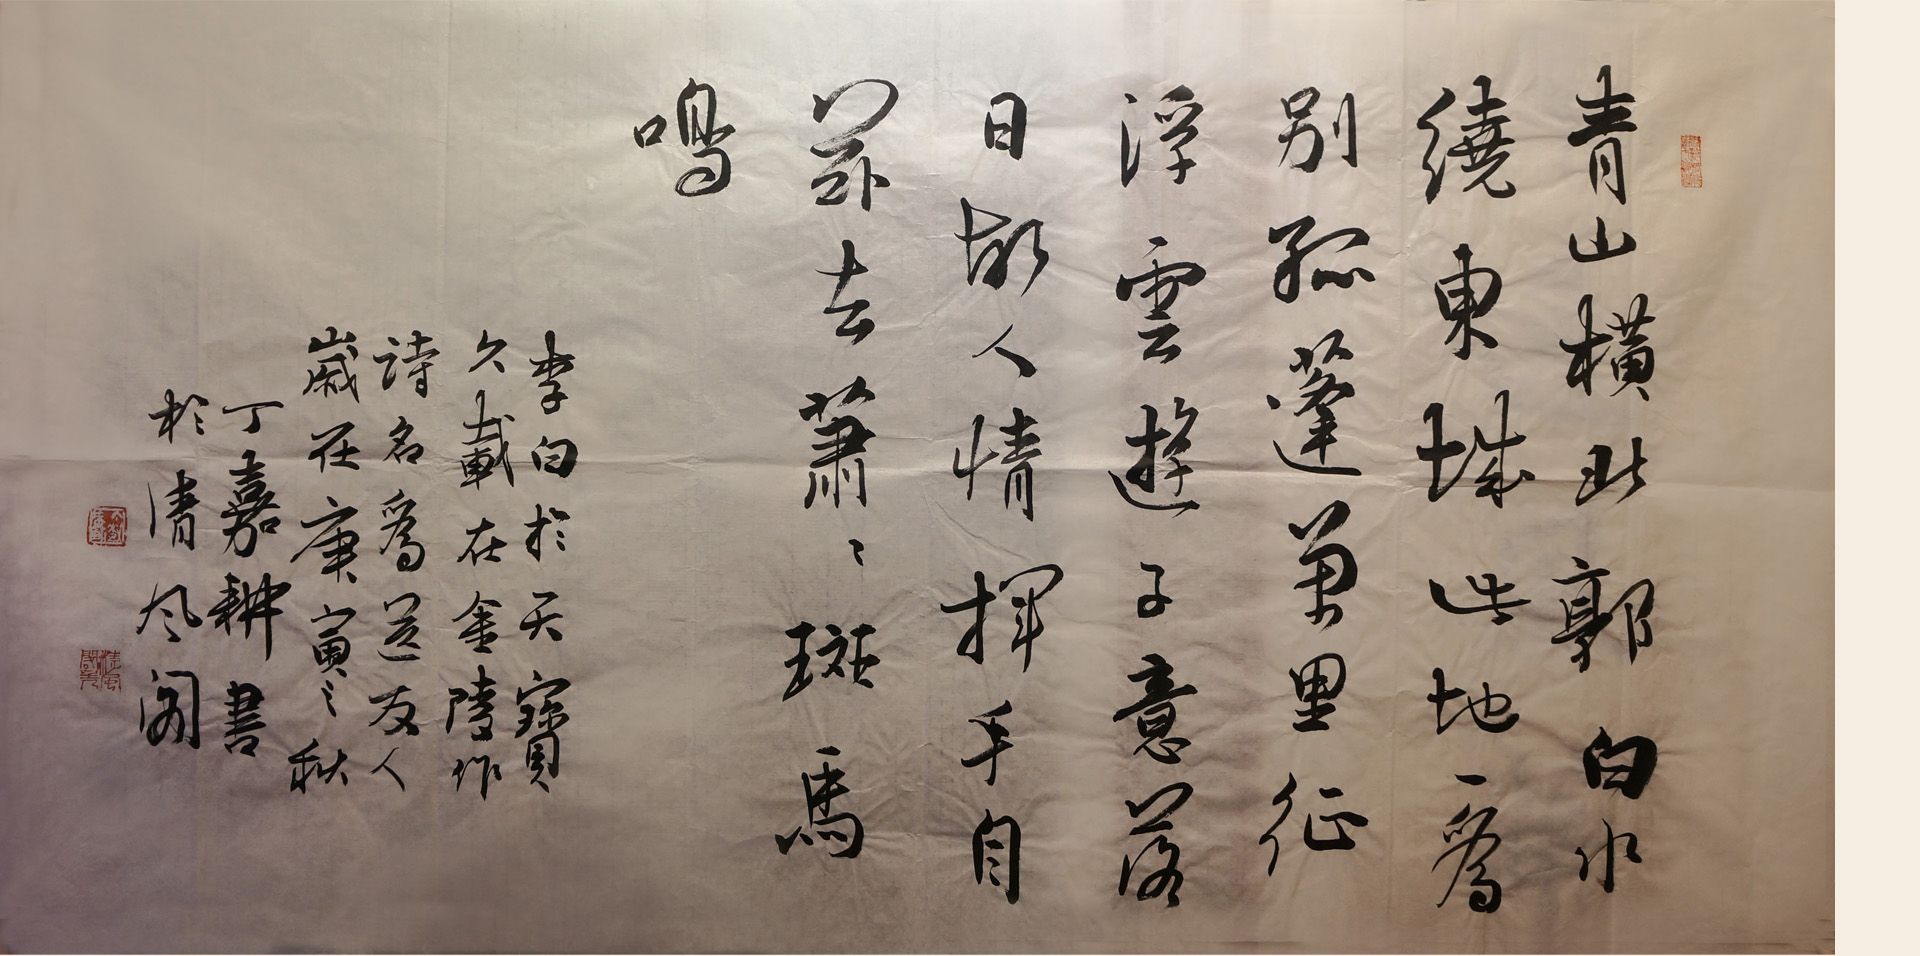 青山橫北郭白水
繞東城此地一爲
別孤蓬萬里征
浮雲遊子意落
日故人情揮手自
茲去蕭〻斑馬
鳴
李白於天寶
久載在金陵作
詩名爲送友人
歲在庚寅之秋
丁嘉耕書
於清风阁